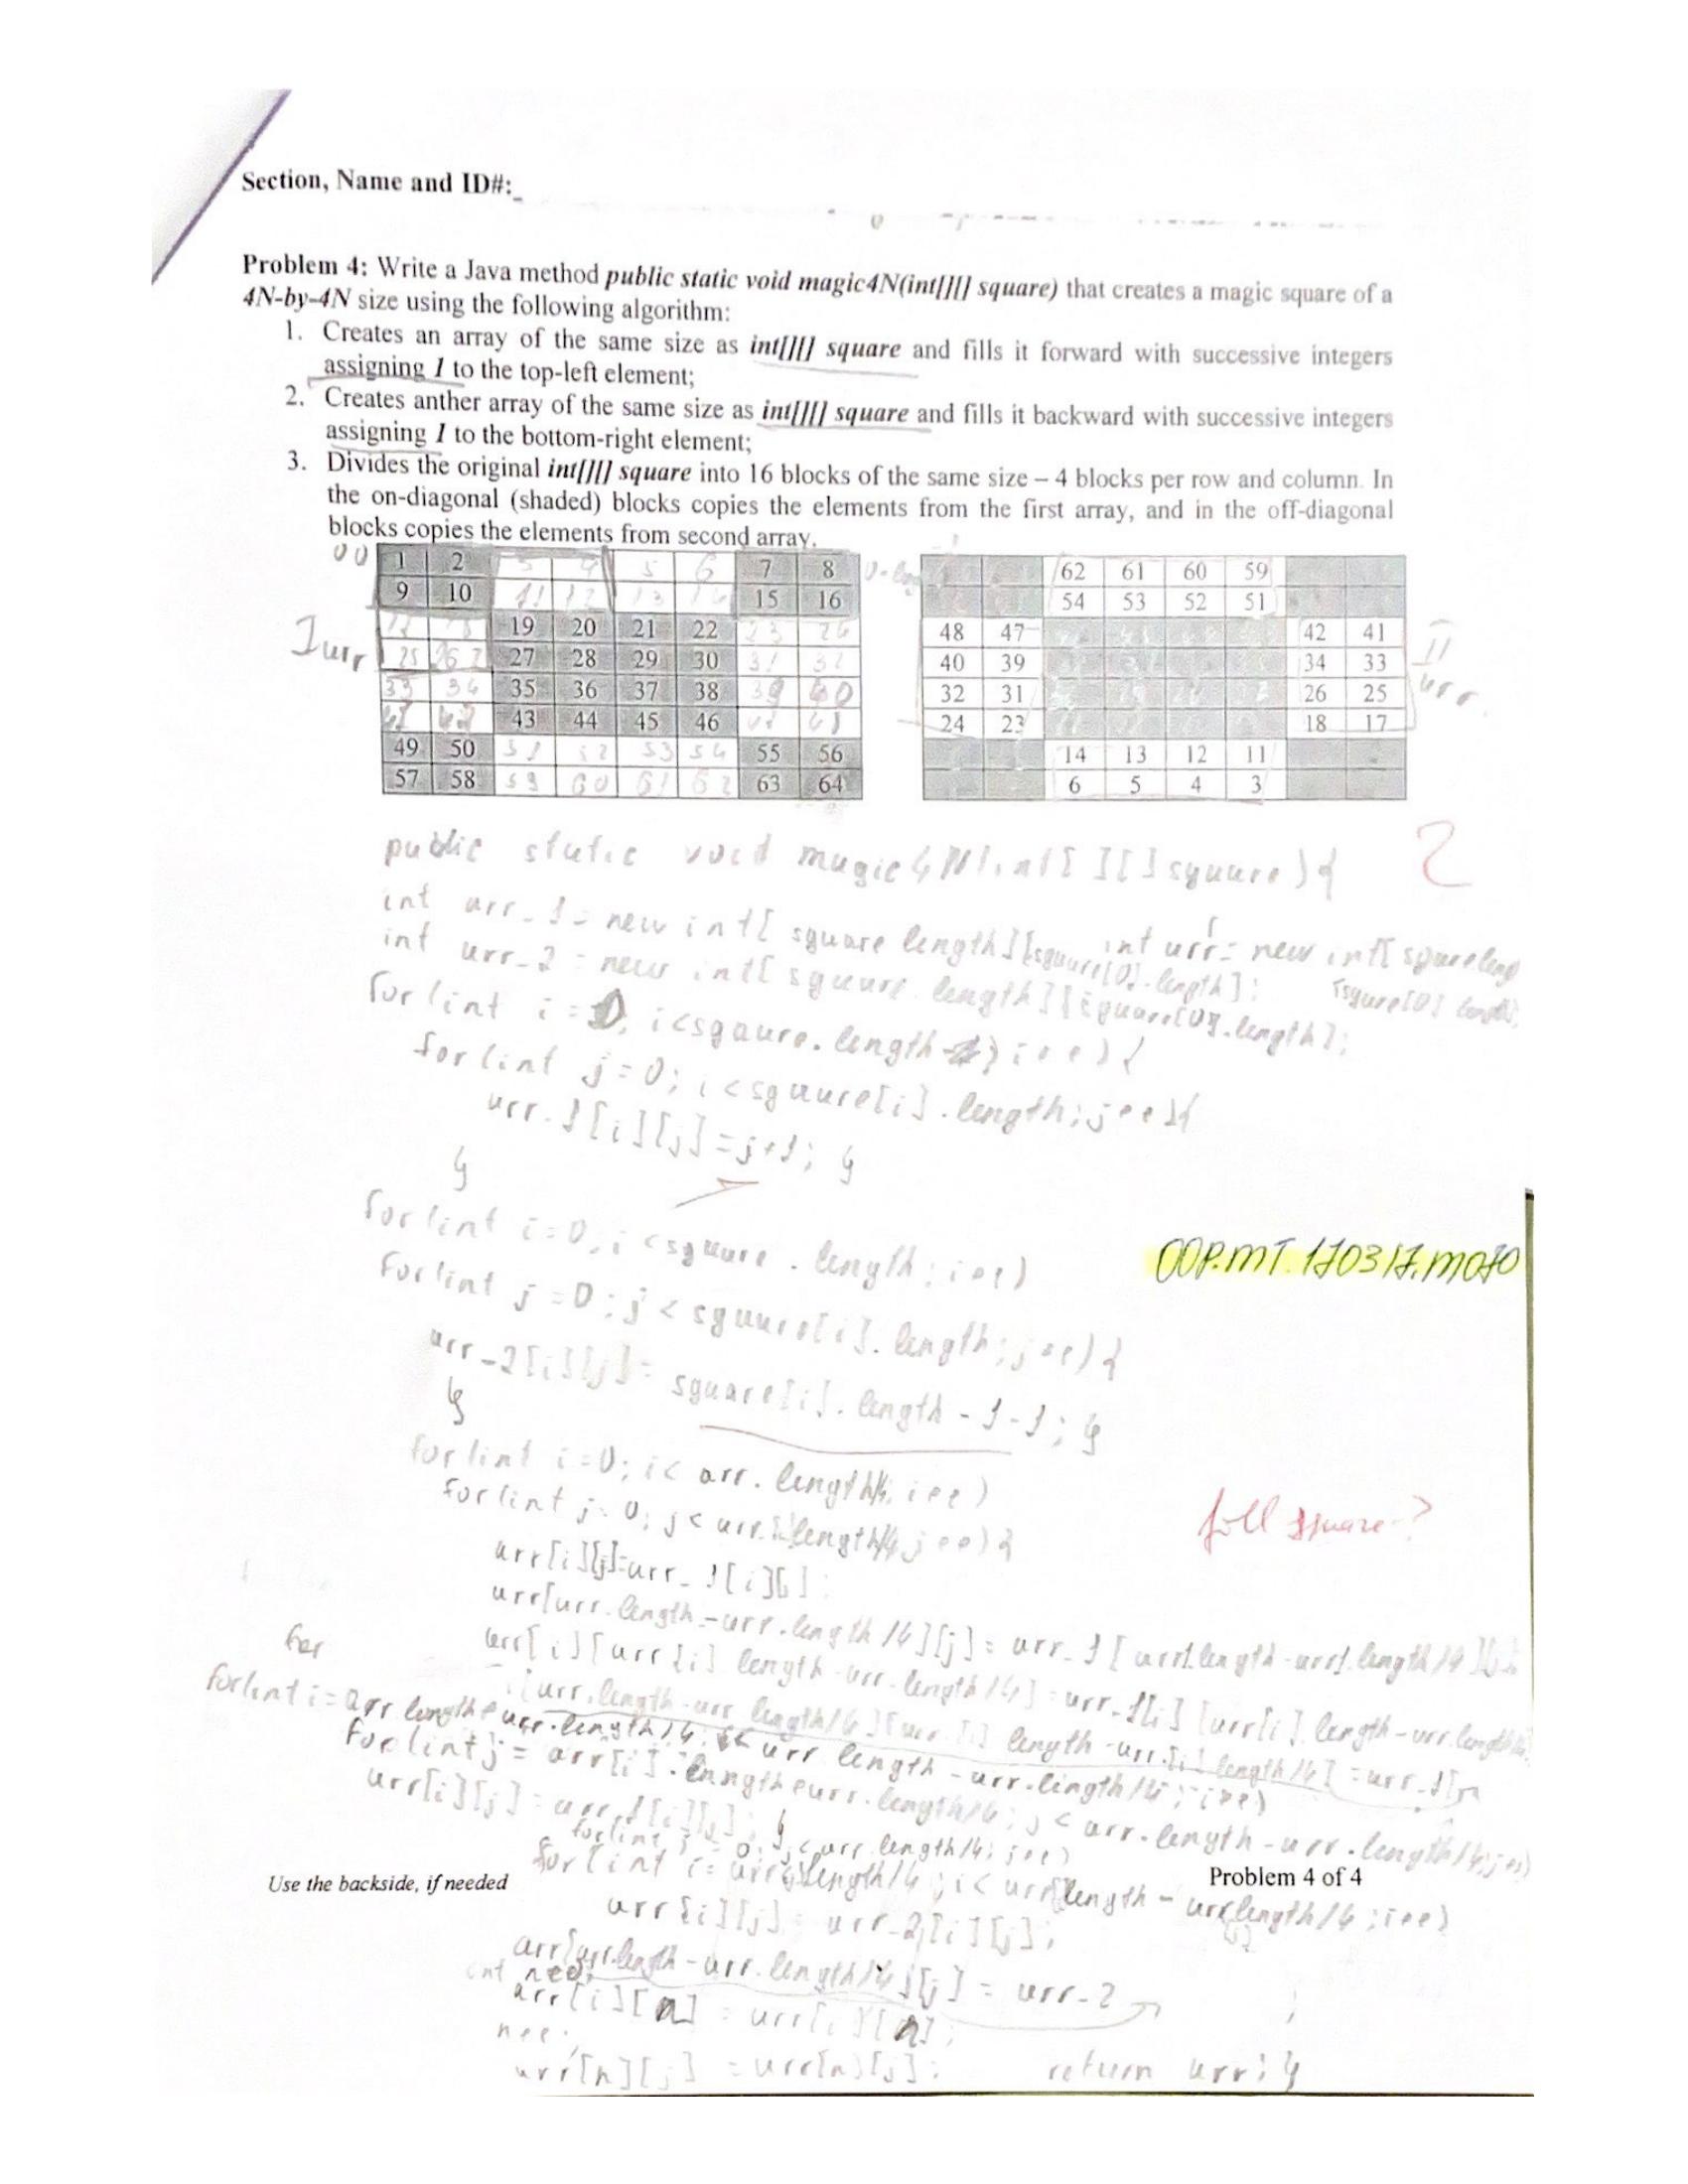 Section, Name and ID#:
Problem 4: Write a Java method public static void magic4N(int[][] square) that creates a magic square of a
4N-by-4N size using the following algorithm:
1. Creates an array of the same size as int[][] square and fills it forward with successive integers
assigning 1 to the top-left element;
2. Creates anther array of the same size as int[][] square and fills it backward with successive integers
assigning 1 to the bottom-right element;
3. Divides the original int[][] square into 16 blocks of the same size – 4 blocks per row and column. In
the on-diagonal (shaded) blocks copies the elements from the first array, and in the off-diagonal
blocks copies the elements from second array.
00 1 2 3 4 5 6 7 8
9 10 11 12 13 14 15 16
17 18 19 20 21 22 23 24
I arr 25 26 27 28 29 30 31 32
33 34 35 36 37 38 39 40
43 44 45 46
49 50 51 52 53 54 55 56
57 58 59 60 61 62 63 64
62 61 60 59
54 53 52 51
48 47 42 41
40 39 34 33
32 31 26 25
24 23 18 17
14 13 12 11
6 5 4 3
II arr
public static void magic4N(int[][]square){
2
int arr_1 = new int[square length][square[0].length];
int arr = new int[square leng
[square[0] length];
int arr_2 = new int[square.length][square[0].length];
for(int i=0; i<sqaure.length; i++){
for(int j=0; i<square[i].length; j++){
arr_1[i][j]=j+1; }
}
for(int i=0; i<square.length; i++)
OOP.MT.170317.M070
for(int j=0; j<square[i].length; j++){
arr_2[i][j]= square[i].length-1-1; }
}
for(int i=0; i< arr.length/4; i++)
for(int j=0; j< arr length/4; j++){
fill square?
arr[i][j]=arr_1[i][j];
arr[arr.length-arr.length/4][j] = arr_1[arr1.length-arr1.length/4][j]
arr[i][arr[i] length-arr.length/4] = arr_1[i][arr[i].length-arr.length/4]
for
[arr.length-arr length/4][arr[i] length-arr[i] length/4] = arr_1[
for(int i=arr length arr.length/4; i< arr length-arr.length/4; i++)
for(int j= arr[i].length arr.length/4; j< arr.length-arr.length/4; j++)
arr[i][j] = arr_1[i][j]; }
for(int j=0; j<arr length/4; j++)
for(int i= arr length/4; i< arr length - arr length/4; i++)
Use the backside, if needed
Problem 4 of 4
arr[i][j] = arr_2[i][j];
arr[arr.length-arr.length/4][j] = arr_2 ;
int
arr[i][n] = arr[i][n];
n++;
arr[n][j] = arr[n][j]; return arr; }